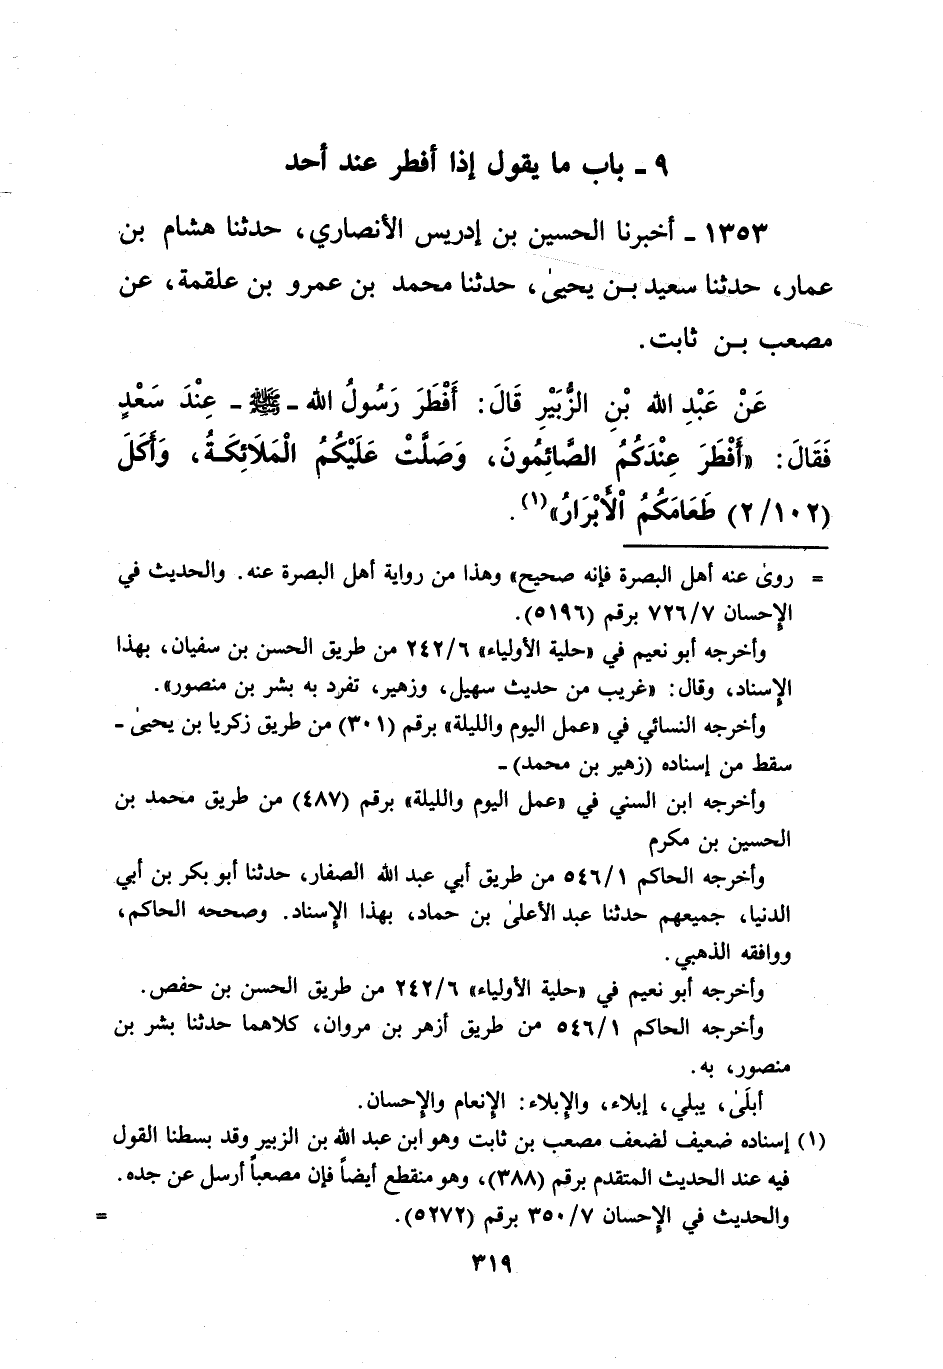 ٩ ـ باب ما يقول إذا أفطر عند أحد
١٣٥٣ ـ أخبرنا الحسين بن إدريس الأنصاري، حدثنا هشام بن
عمار، حدثنا سعيد بـن يحيىٰ، حدثنا محمد بن عمرو بن علقمة، عن
مصعب بـن ثابت.
عَنْ عَبْدِ الله بْنِ الزُّبَيْرِ قَالَ: أَفْطَرَ رَسُولُ الله ـ ﷺ ـ عِنْدَ سَعْدٍ
فَقَالَ: «أَفْطَرَ عِنْدَكُمُ الصَّائِمُونَ، وَصَلَّتْ عَلَيْكُمُ الْمَلَائِكَـةُ، وَأَكَلَ
(٢/١٠٢) طَعَامَكُمُ اْلأَبْرَارُ»(١).
= روىٰ عنه أهل البصرة فإنه صحيح» وهذا من رواية أهل البصرة عنه. والحديث في
الإحسان ٧٢٦/٧ برقم (٥١٩٦).
وأخرجه أبو نعيم في «حلية الأولياء» ٢٤٢/٦ من طريق الحسن بن سفيان، بهذا
الإسناد، وقال: «غريب من حديث سهيل، وزهير، تفرد به بشر بن منصور».
وأخرجه النسائي في «عمل اليوم والليلة» برقم (٣٠١) من طريق زكريا بن يحيىٰ ـ
سقط من إسناده (زهير بن محمد) ـ
وأخرجه ابن السني في «عمل اليوم والليلة» برقم (٤٨٧) من طريق محمد بن
الحسين بن مكرم
وأخرجه الحاكم ٥٤٦/١ من طريق أبي عبد الله الصفار، حدثنا أبو بكر بن أبي
الدنيا، جميعهم حدثنا عبد الأعلىٰ بن حماد، بهذا الإسناد. وصححه الحاكم،
ووافقه الذهبي.
وأخرجه أبو نعيم في «حلية الأولياء» ٢٤٢/٦ من طريق الحسن بن حفص.
وأخرجه الحاكم ٥٤٦/١ من طريق أزهر بن مروان، كلاهما حدثنا بشر بن
منصور، به.
أبلَىٰ، يبلي، إبلاء، والإبلاء: الإنعام والإحسان.
(١) إسناده ضعيف لضعف مصعب بن ثابت وهو ابن عبد الله بن الزبير وقد بسطنا القول
فيه عند الحديث المتقدم برقم (٣٨٨)، وهو منقطع أيضاً فإن مصعباً أرسل عن جده.
والحديث في الإحسان ٣٥٠/٧ برقم (٥٢٧٢). =
٣١٩